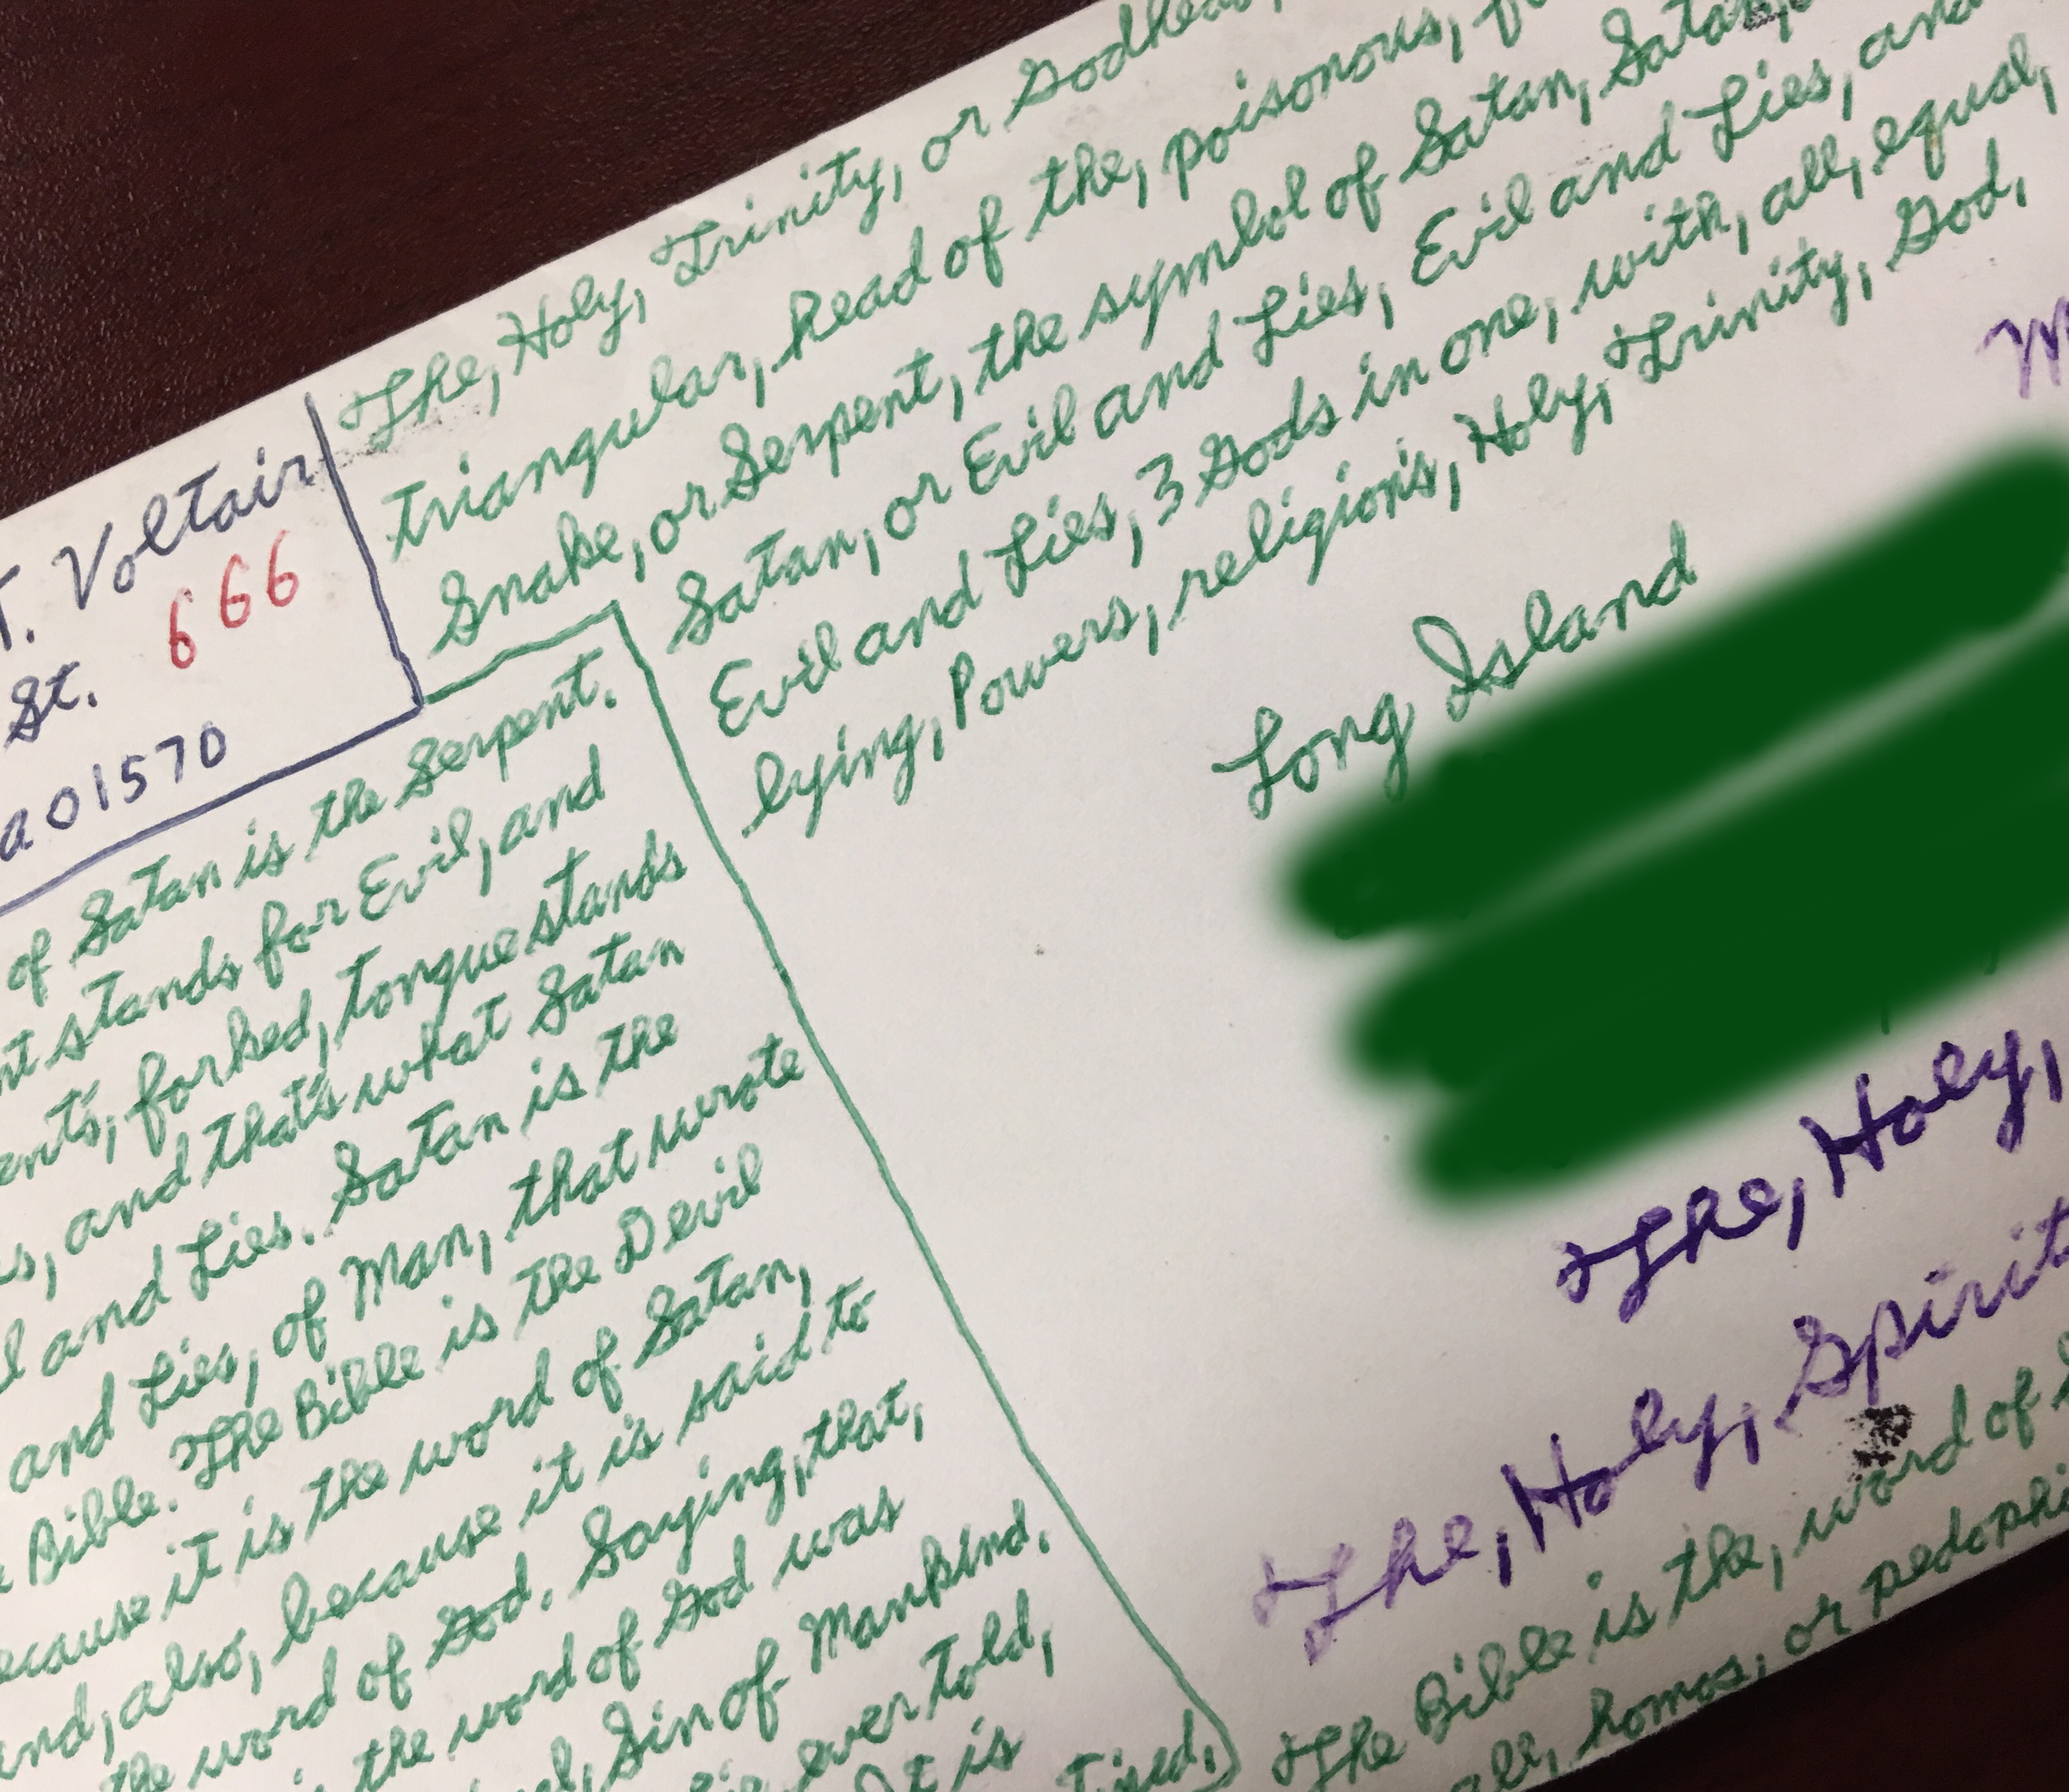 T. Voltair
St. 666
a 01570
The, Holy, Trinity, or Godhead,
triangular, head of the, poisonous,
Snake, or Serpent, the symbol of Satan, Satan,
Satan, or Evil and Lies, Evil and Lies, and
Evil and Lies, 3 Gods in one, with, all, equal,
lying, Powers, religion's, Holy, Trinity, God,
Long Island
of Satan is the Serpent.
stands for Evil, and
forked, tongue stands
and that's what Satan
and Lies. Satan is the
and Lies, of Man, that wrote
Bible. The Bible is the Devil
because it is the word of Satan,
and, also, because it is said to
the word of God. Saying, that,
the word of God was
Sin of Mankind.
ever told,
It is
The, Holy,
The, Holy, Spirit
The Bible is the, word of
homos, or